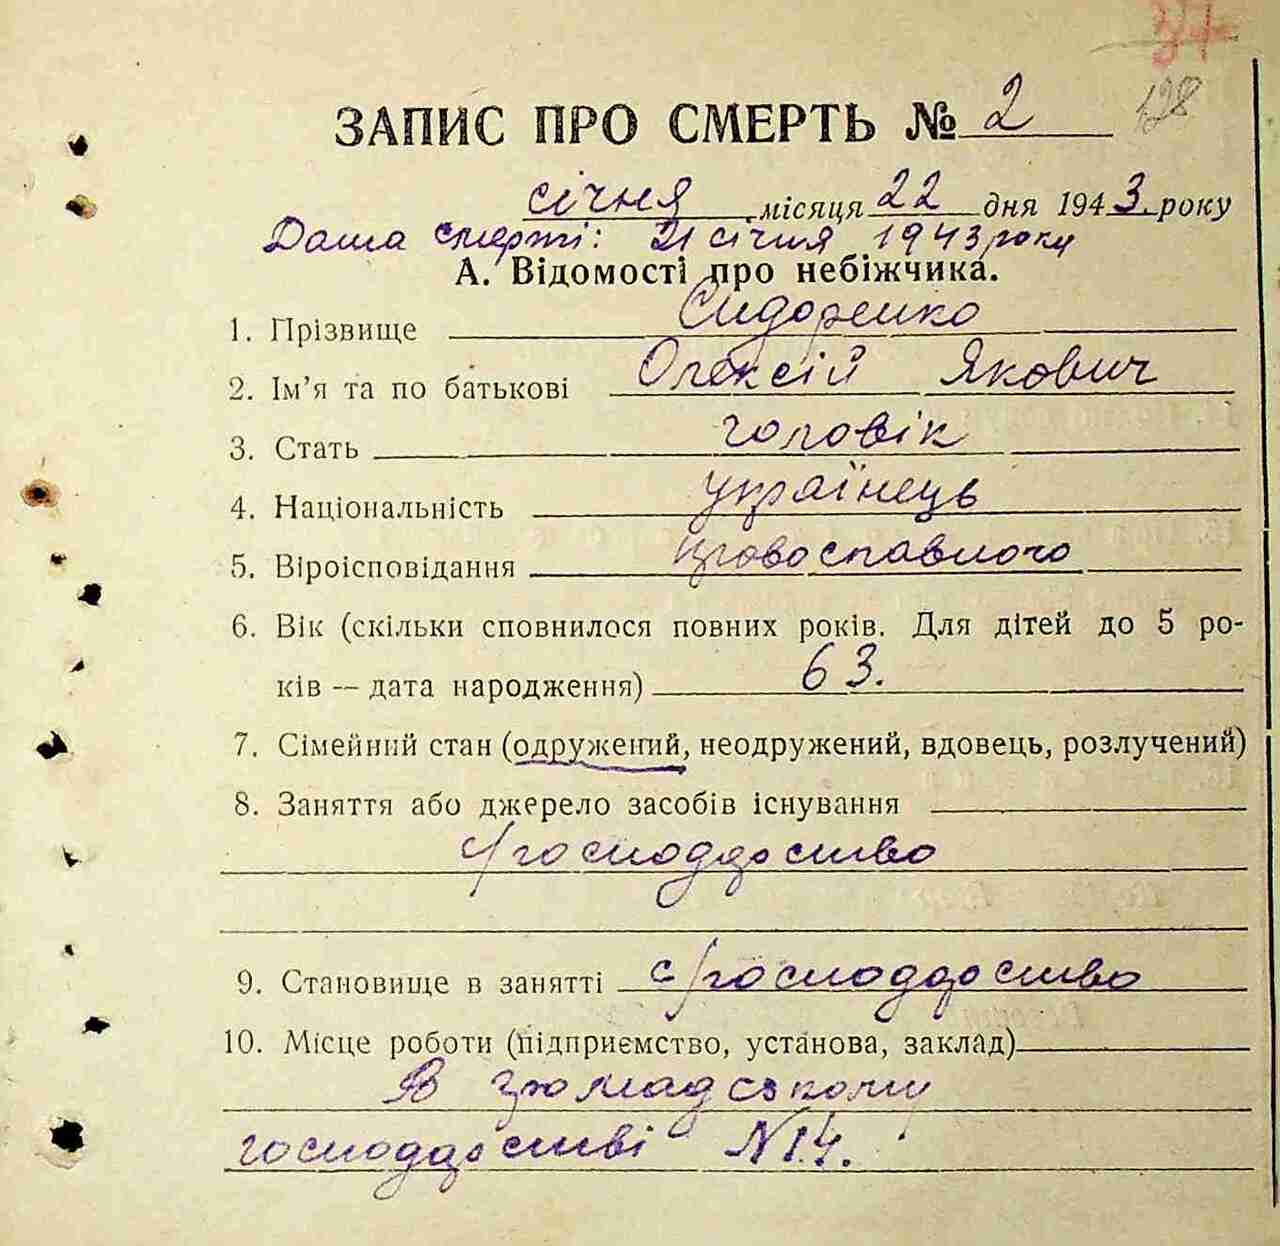 37
128
ЗАПИС ПРО СМЕРТЬ № 2
січня місяця 22 дня 1943 року
Дата смерті: 21 січня 1943 року
А. Відомості про небіжчика.
1. Прізвище Сидоренко
2. Ім'я та по батькові Олексій Якович
3. Стать чоловік
4. Національність українець
5. Віроісповідання провославного
6. Вік (скільки сповнилося повних років. Для дітей до 5 ро-
ків — дата народження) 63.
7. Сімейний стан (одружений, неодружений, вдовець, розлучений)
8. Заняття або джерело засобів існування
с/господарство
9. Становище в занятті с/господарство
10. Місце роботи (підприємство, установа, заклад)
В громадському
господарстві № 14.